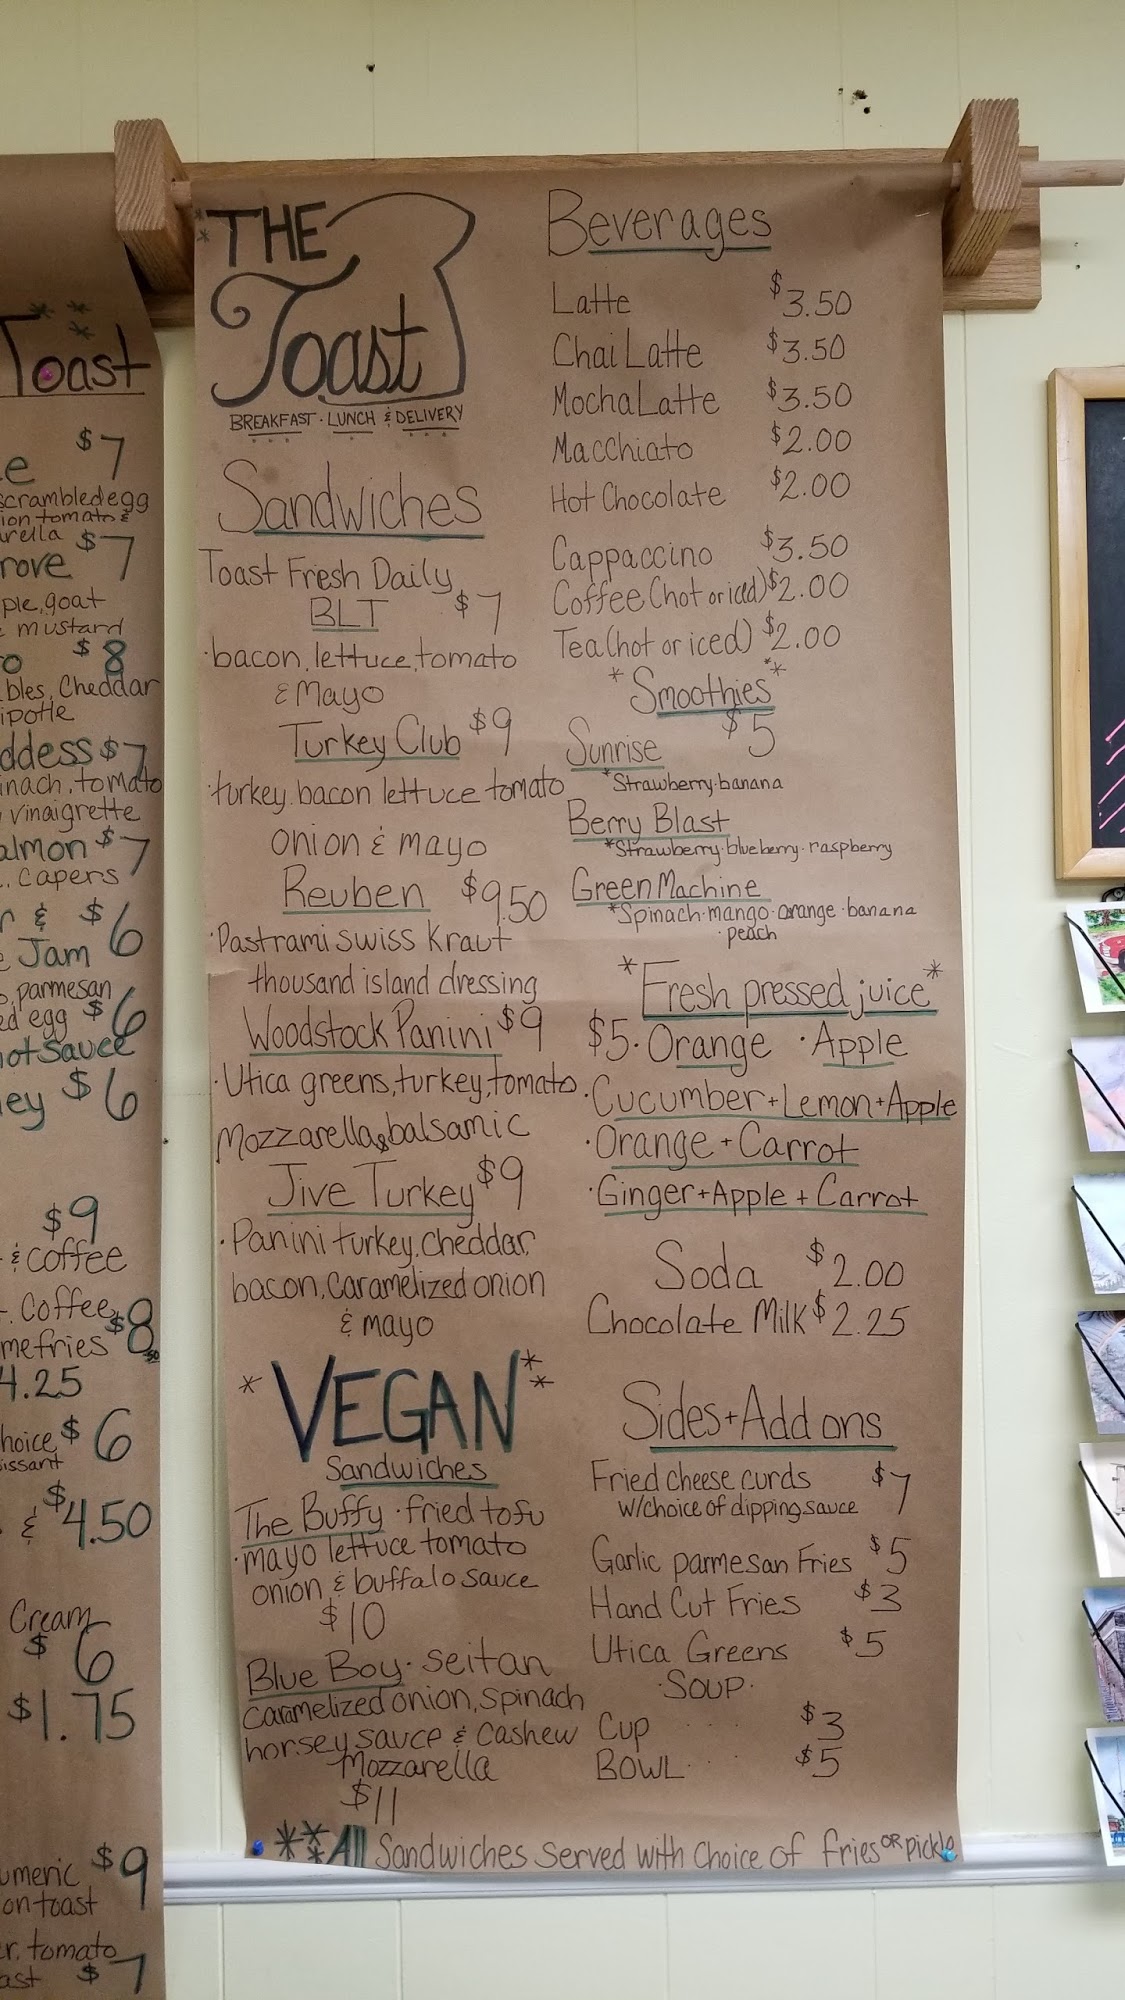 Toast
$7
e
scrambled egg
ion tomato &
arella
rove $7
ple, goat
mustard
o $8
bles, Cheddar
ipotle
ddess $7
inach, tomato
vinaigrette
almon $7
Capers
r & $6
e Jam
parmesan
ed egg $6
hot Sauce
ey $6
$9
& coffee
Coffee $8.50
mefries
4.25
hoice $6
issant
& $4.50
Cream
$6
$1.75
umeric $9
on toast
er. tomato
ast $7
THE
Toast
BREAKFAST · LUNCH & DELIVERY
Sandwiches
Toast Fresh Daily
BLT $7
·bacon, lettuce, tomato
& Mayo
Turkey Club $9
·turkey. bacon lettuce tomato
onion & mayo
Reuben $9.50
·Pastrami swiss Kraut
thousand island dressing
Woodstock Panini $9
·Utica greens, turkey, tomato
Mozzarella & balsamic
Jive Turkey $9
·Panini turkey, cheddar,
bacon, caramelized onion
& mayo
*VEGAN**
Sandwiches
The Buffy · fried tofu
·mayo lettuce tomato
onion & buffalo sauce
$10
Blue Boy · seitan
caramelized onion, spinach
horsey sauce & Cashew
Mozzarella
$11
Beverages
Latte $3.50
Chai Latte $3.50
Mocha Latte $3.50
Macchiato $2.00
Hot Chocolate $2.00
Cappaccino $3.50
Coffee (hot or iced) $2.00
Tea (hot or iced) $2.00
*Smoothies*
Sunrise $5
*Strawberry·banana
Berry Blast
*Strawberry·blueberry·raspberry
Green Machine
*Spinach·mango·orange·banana
·peach
*Fresh pressed juice*
$5·Orange ·Apple
·Cucumber+Lemon+Apple
·Orange+Carrot
·Ginger+Apple+Carrot
Soda $2.00
Chocolate Milk $2.25
Sides+Add ons
Fried cheese curds $7
w/choice of dipping sauce
Garlic parmesan Fries $5
Hand Cut Fries $3
Utica Greens $5
·SOUP·
Cup $3
BOWL $5
***All Sandwiches Served with Choice of fries OR pickle